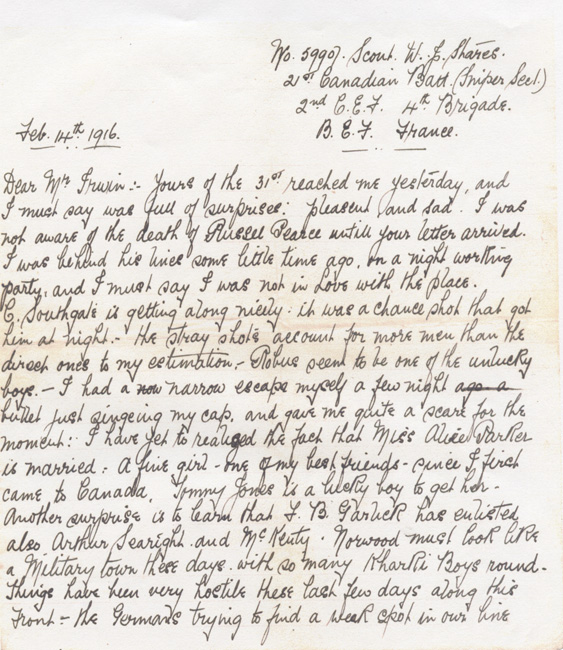 No. 59907. Scout. W. J. Shares.
21st Canadian Batt. (Sniper Sect.)
2nd C.E.F. 4th Brigade.
Feb. 14th 1916. B.E.F. France.
Dear Mr Irwin:- Yours of the 31st reached me yesterday, and
I must say was full of surprises: pleasent and sad. I was
not aware of the death of Russel Pearce untill your letter arrived.
I was behind his lines some little time ago, on a night working
party, and I must say I was not in love with the place.
E. Southgate is getting along nicely: it was a chance shot that got
him at night.- The stray shots account for more men than the
direct ones to my estimation.- Robus seem to be one of the unlucky
boys.- I had a now narrow escape myself a few night ago a
bullet just singeing my cap, and gave me quite a scare for the
moment: I have yet to realised the fact that Miss Alice Parker
is married: A fine girl - one of my best friends - since I first
came to Canada, Tommy Jones is a lucky boy to get her-
Another surprise is to learn that F. B. Garlick has enlisted
also Arthur Searight and McKenty. Norwood must look like
a Military town these days with so many Kharki Boys round-
Things have been very hostile these last few days along this
Front - the Germans trying to find a week spot in our line